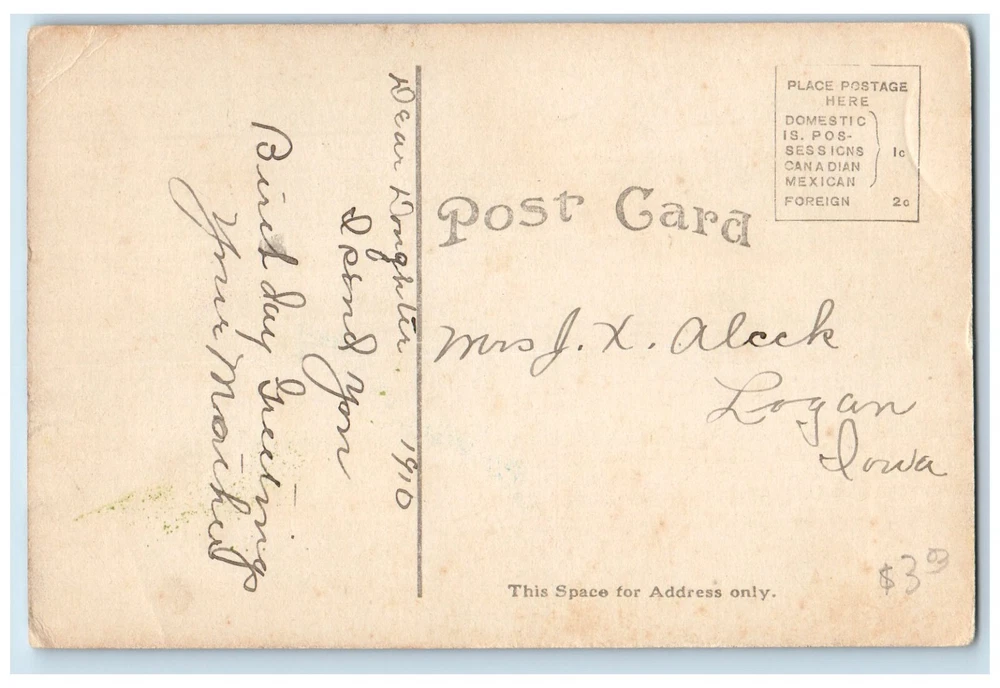 Dear Doughter 1910
I send You
Birthday Greetings
Your Mother
Post Card
PLACE POSTAGE
HERE
DOMESTIC
IS. POS-
SESSIONS
CANADIAN
MEXICAN
1c
FOREIGN 2c
Mrs J. X. Alcck
Logan
Iowa
This Space for Address only.
$3.00